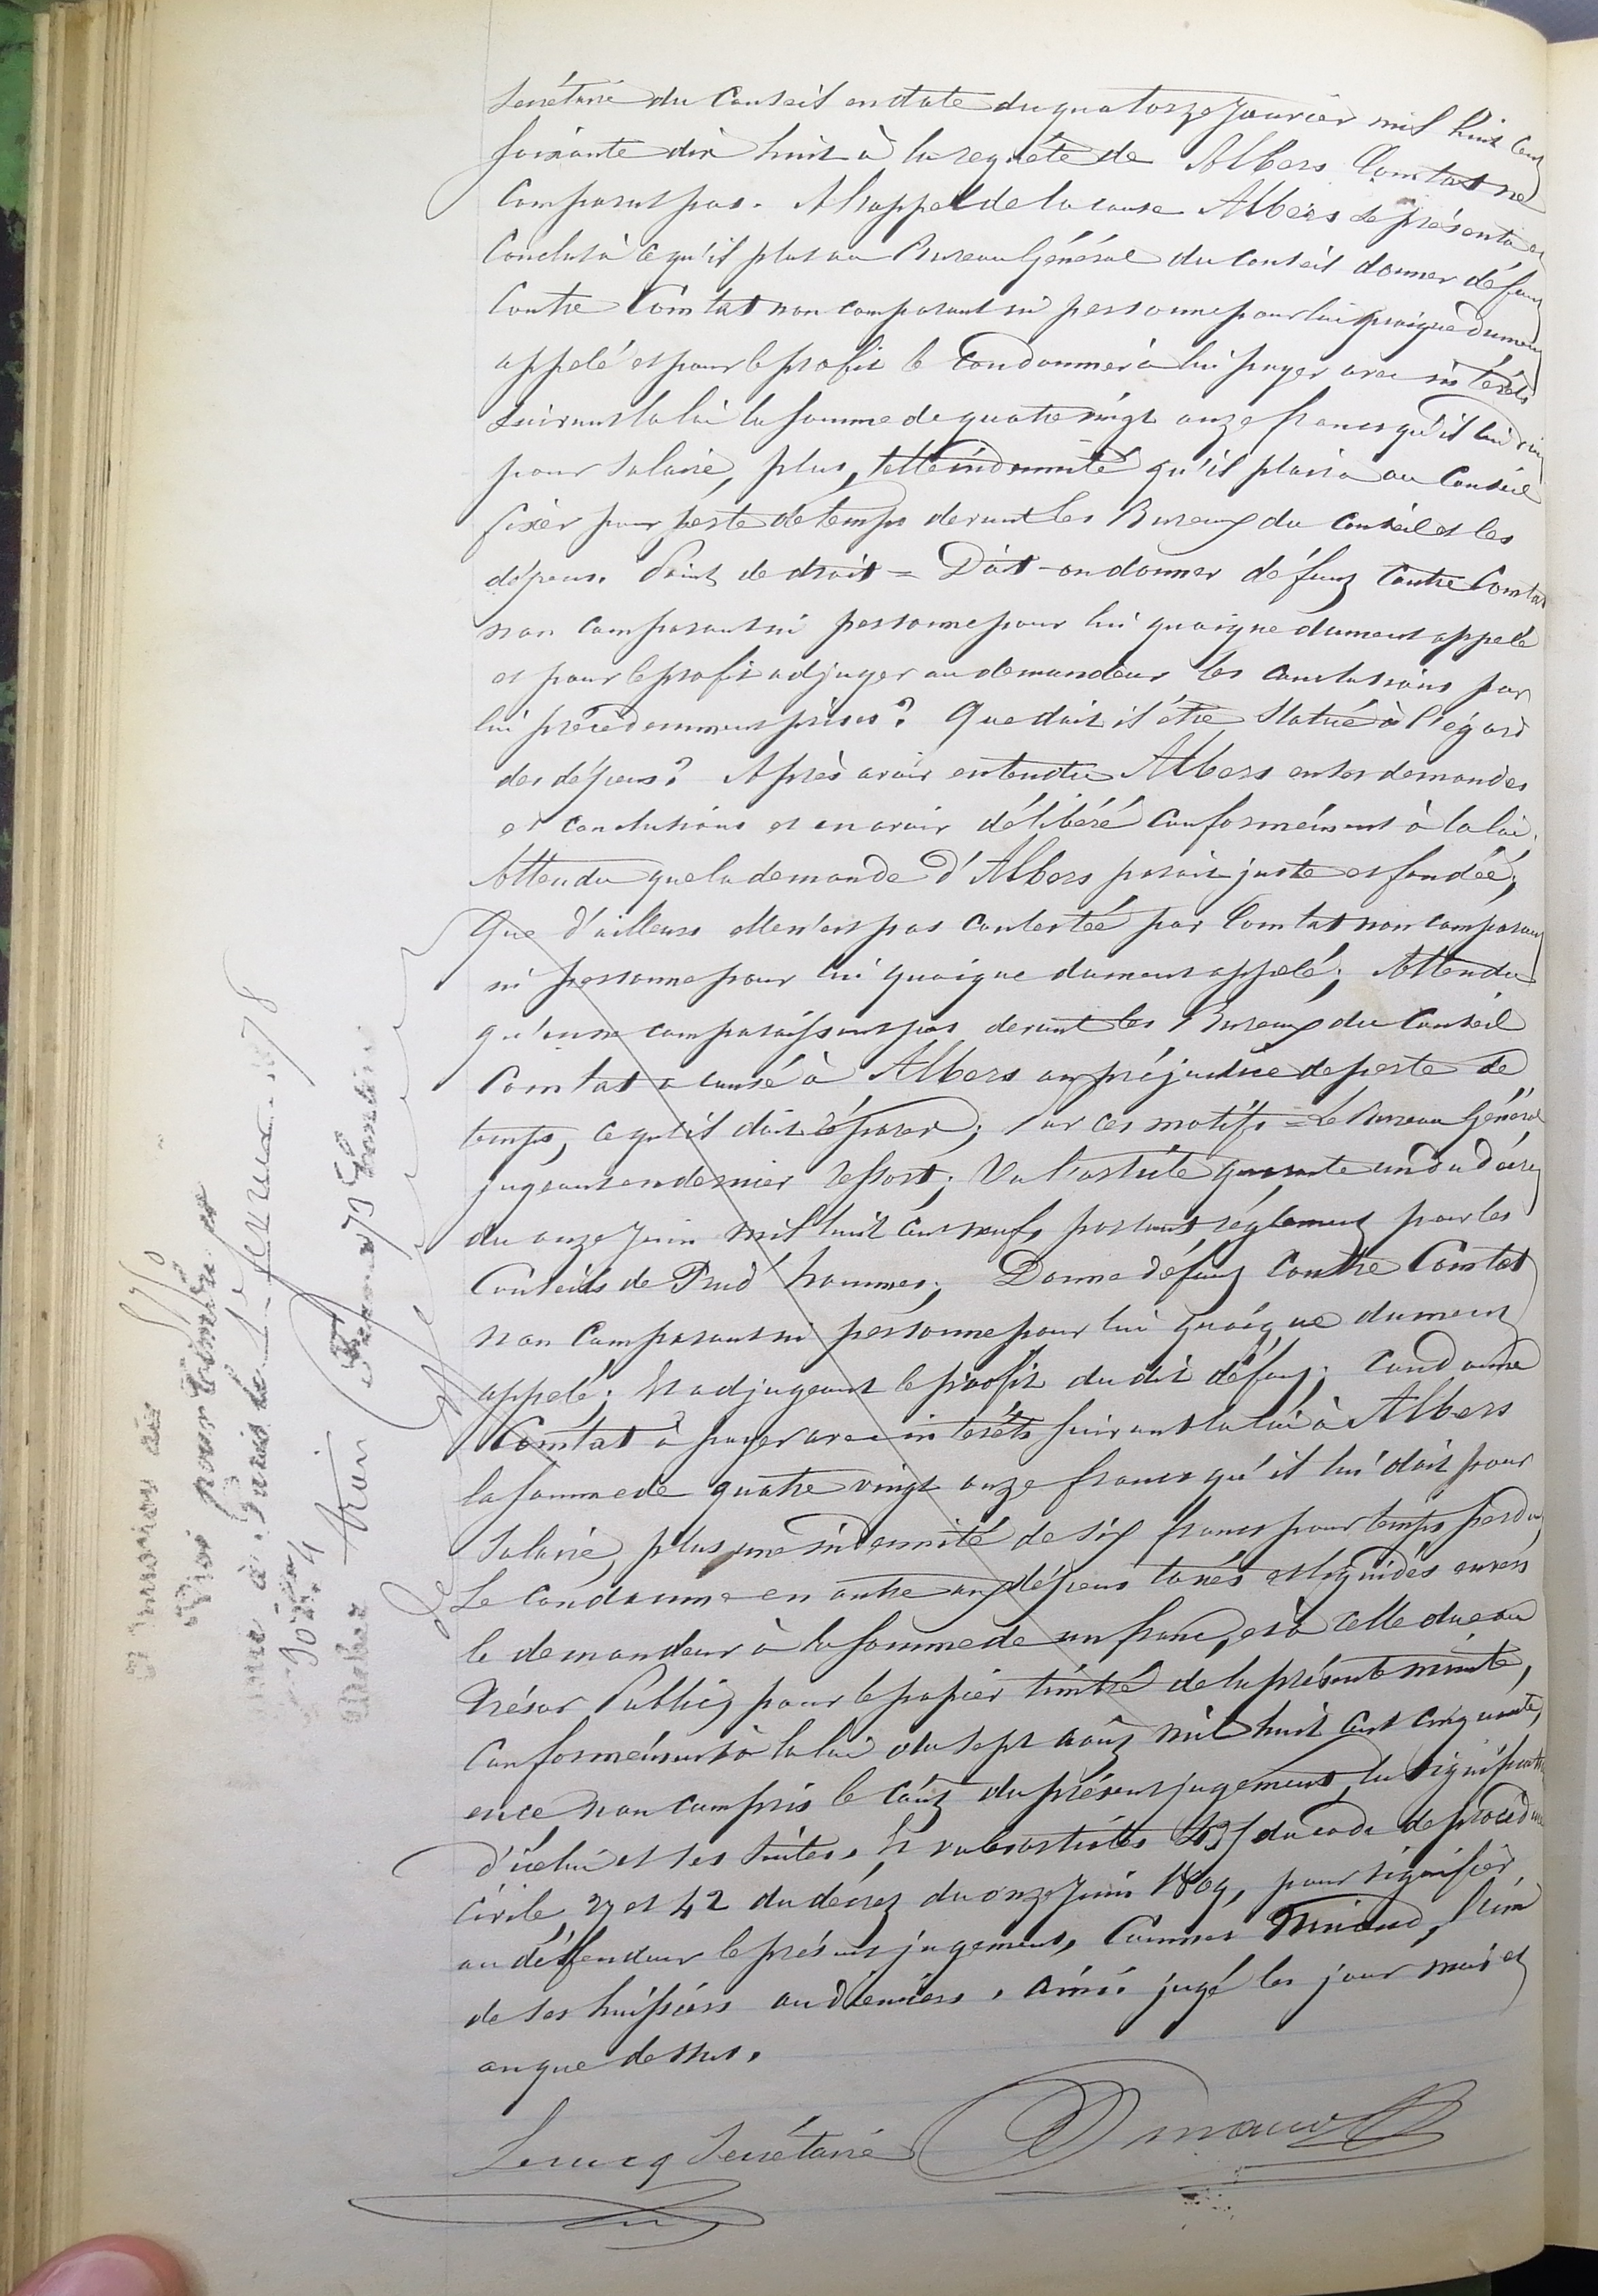 Secrétaire du Conseil en date du quatorze Janvier mil huit cent
soixante dix huit à la requête de Albers Comtat ne
Comparut pas. A l'appel de la cause Albers se présenta et
Conclut à ce qu'il plut au Bureau Général du Conseil donner défaut
Contre Comtat non comparant ni personne pour lui quoique dument
appelé et pour le profit le Condamner à lui payer avec intérêts
suivant la loi la somme de quatre vingt onze francs qu'il lui doit
pour Salaire, plus, telle indemnité qu'il plaira au Conseil
fixer pour perte de temps devant les Bureaux du Conseil et les
dépens. Point de droit = Doit-on donner défaut Contre Comtat
non comparant ni personne pour lui quoique dument appelé
et pour le profit adjuger au demandeur les conclusions par
lui précédemment prises? Que doit il être Statué à l'égard
des dépens? Après avoir entendu Albers en ses demandes
et conclusions et en avoir délibéré Conformément à la loi.
Attendu que la demande d'Albers parait juste et fondée;
Que d'ailleurs elle n'est pas contestée par Comtat non comparant
ni personne pour lui quoique dument appelé; Attendu
qu'en ne comparaissant pas devant les Bureaux du Conseil
Comtat a causé à Albers un préjudice de perte de
temps, ce qu'il doit réparer; Par ces motifs = Le Bureau Général
jugeant en dernier ressort; Vu l'article quarante un du décret
du onze Juin mil huit cent neuf, portant règlement pour les
Conseils de Prud'hommes; Donne défaut contre Comtat
non comparant ni personne pour lui quoique dument
appelé; Et adjugeant le profit du dit défaut; Condamne
Comtat à payer avec intérêts suivant la loi à Albers
la somme de quatre vingt onze francs qu'il lui doit pour
Salaire, plus une indemnité de six francs pour temps perdu,
Le Condamne en outre aux dépens taxés et liquidés envers
le demandeur à la somme de un franc, et à celle due au
Trésor Public, pour le papier timbré de la présente minute,
Conformément à la loi du sept août mil huit cent cinquante,
en ce, non compris le coût du présent jugement, la signification
d'icelui et ses suites. Et vu les articles 435 du code de procédure
Civile, 27 et 42 du décret du onze Juin 1809, pour signifier
au défendeur le présent jugement, Commet , l'un
de ses huissiers audienciers. Ainsi jugé les jour mois et
an que dessus.
Lecucq Secrétaire
pour timbre et
à Paris le
1878